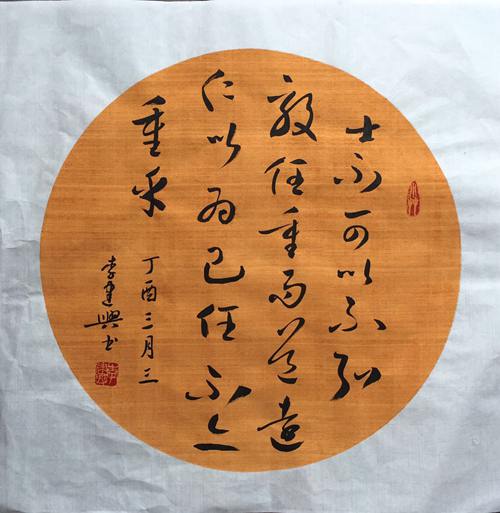 士不可以不弘
毅任重而道遠
仁以為己任不亦
重乎
丁酉三月三
李建興书